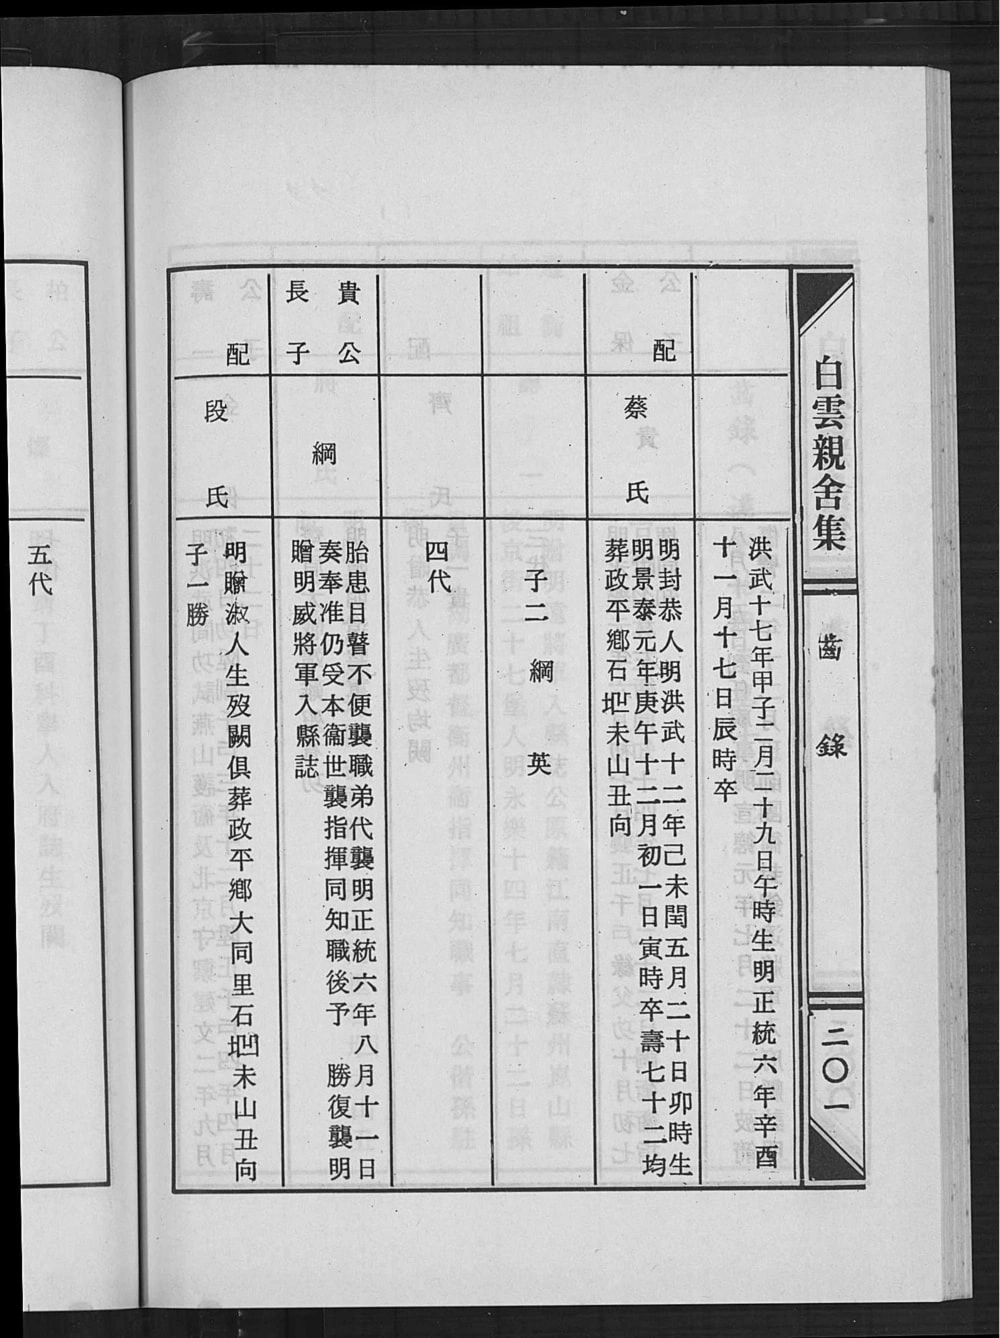 白雲親舍集
齒錄
二〇一
洪武十七年甲子二月二十九日午時生明正統六年辛酉
十一月十七日辰時卒
配
蔡氏
明封恭人明洪武十二年己未閏五月二十日卯時生
明景泰元年庚午十二月初一日寅時卒壽七十二均
葬政平鄉石𡉏未山丑向
子二 綱 英
四代
貴公
長子
綱
胎患目瞽不便襲職弟代襲明正統六年八月十一日
奏奉准仍受本衞世襲指揮同知職後予 勝復襲明
贈明威將軍入縣誌
配
段氏
明贈淑人生歿闕俱葬政平鄉大同里石𡉏未山丑向
子一勝
五代